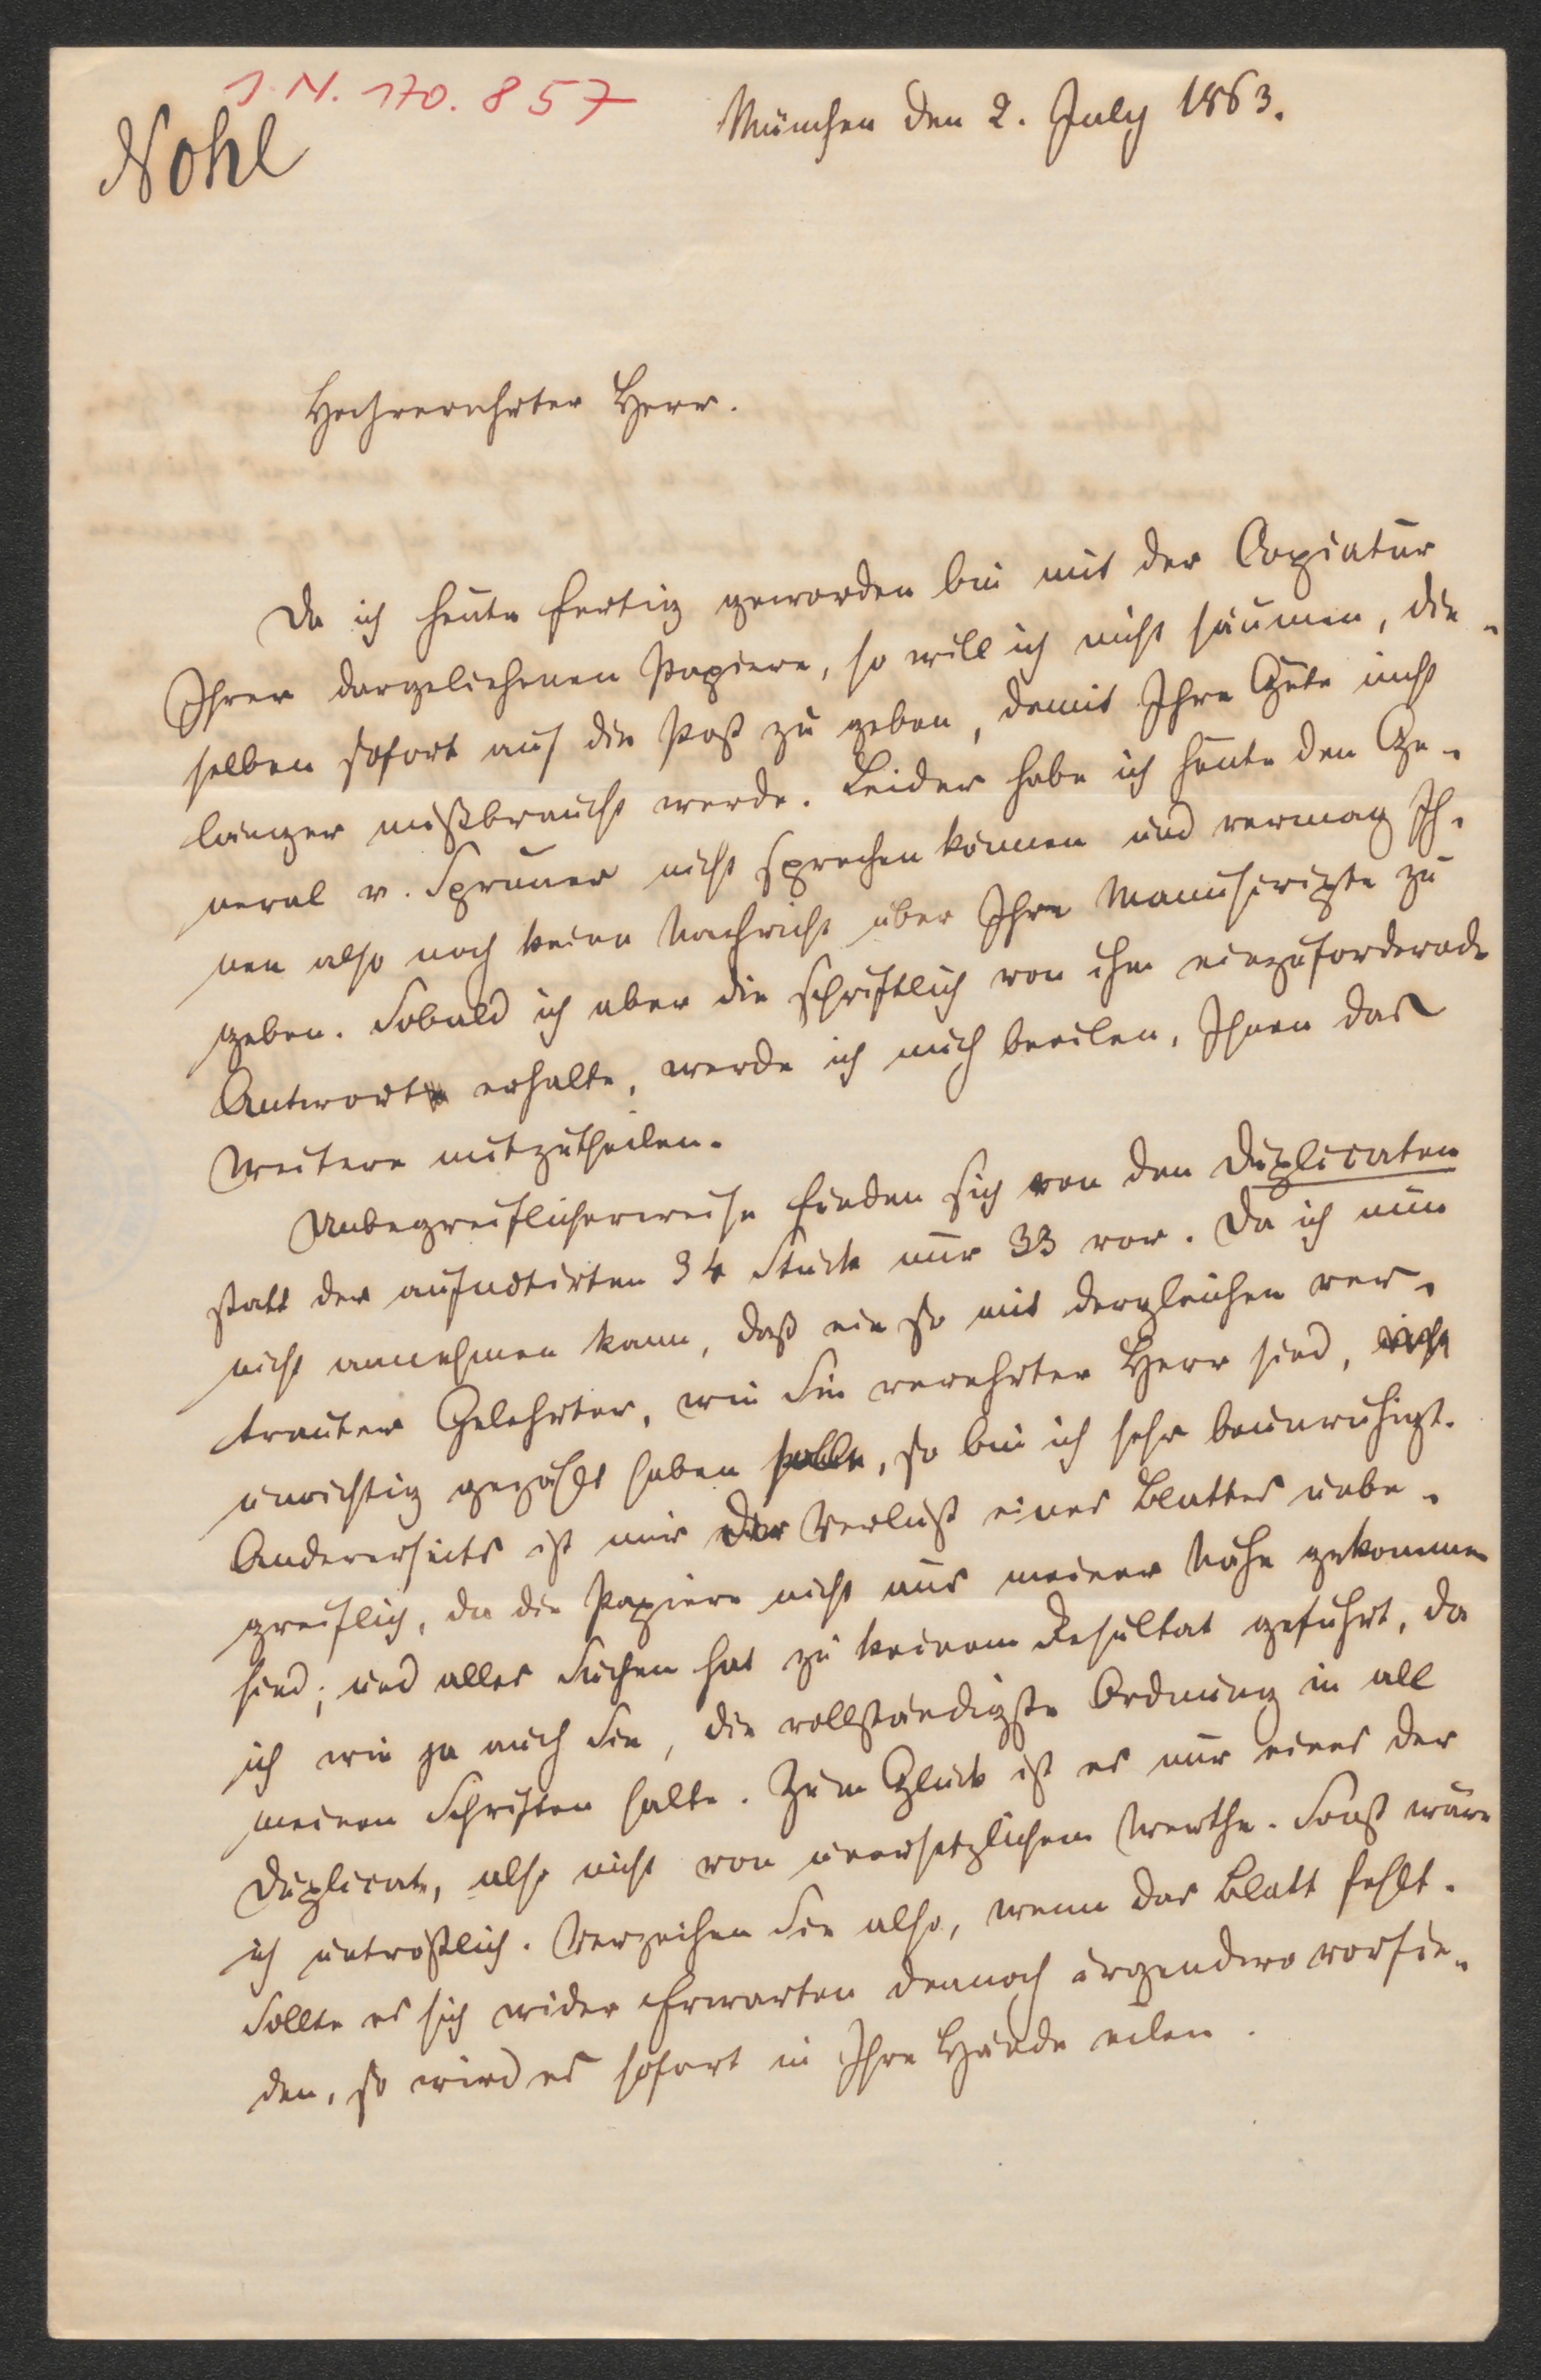 J. N. 170.857
Nohl
München den 2. July 1863.
Hochverehrter Herr.
Da ich heute fertig geworden bin mit der Copiatur
Ihrer dargeliehenen Papiere, so will ich nicht säumen, die-
selben sofort auf die Post zu geben, damit Ihre Güte nicht
länger mißbraucht werde. Leider habe ich heute den Ge-
neral v. Spruner nicht sprechen können und vermag Ih-
nen also noch keine Nachricht über Ihre Manuscripte zu
geben. Sobald ich aber die schriftlich von ihm einzufordernde
Antwort erhalte, werde ich mich beeilen, Ihnen das
Weitere mitzutheilen.
Unbegreiflicherweise finden sich von den Duplicaten
statt der aufnotirten 34 Stück nur 33 vor. Da ich nun
nicht annehmen kann, daß ein so mit dergleichen ver-
trauter Gelehrter, wie Sie verehrter Herr sind,
unrichtig gezählt haben sollte, so bin ich sehr beunruhigt.
Andererseits ist mir der Verlust eines Blattes unbe-
greiflich, da die Papiere nicht aus meiner Nähe gekommen
sind; und alles Suchen hat zu keinem Resultat geführt, da
ich wie ja auch Sie, die vollständigste Ordnung in all
meinen Schriften halte. Zum Glück ist es nur eines der
Duplicate, also nicht von unersetzlichem Werthe. Sonst wäre
ich untröstlich. Verzeihen Sie also, wenn das Blatt fehlt.
Sollte es sich wider Erwarten dennoch irgendwo vorfin-
den, so wird es sofort in Ihre Hände eilen.